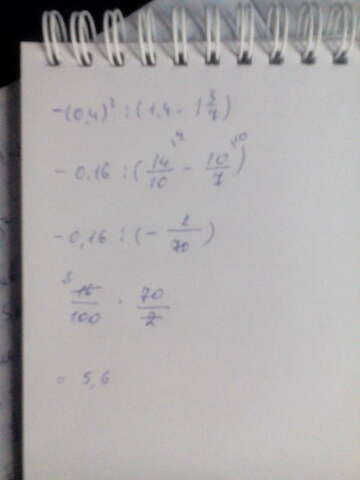 -(0,4)² : (1,4 - 1 3/7)
- 0.16 : (14/10 ⁷ - 10/7 ¹⁰)
-0,16 : (- 2/70)
8 16/100 · 70/2
= 5,6